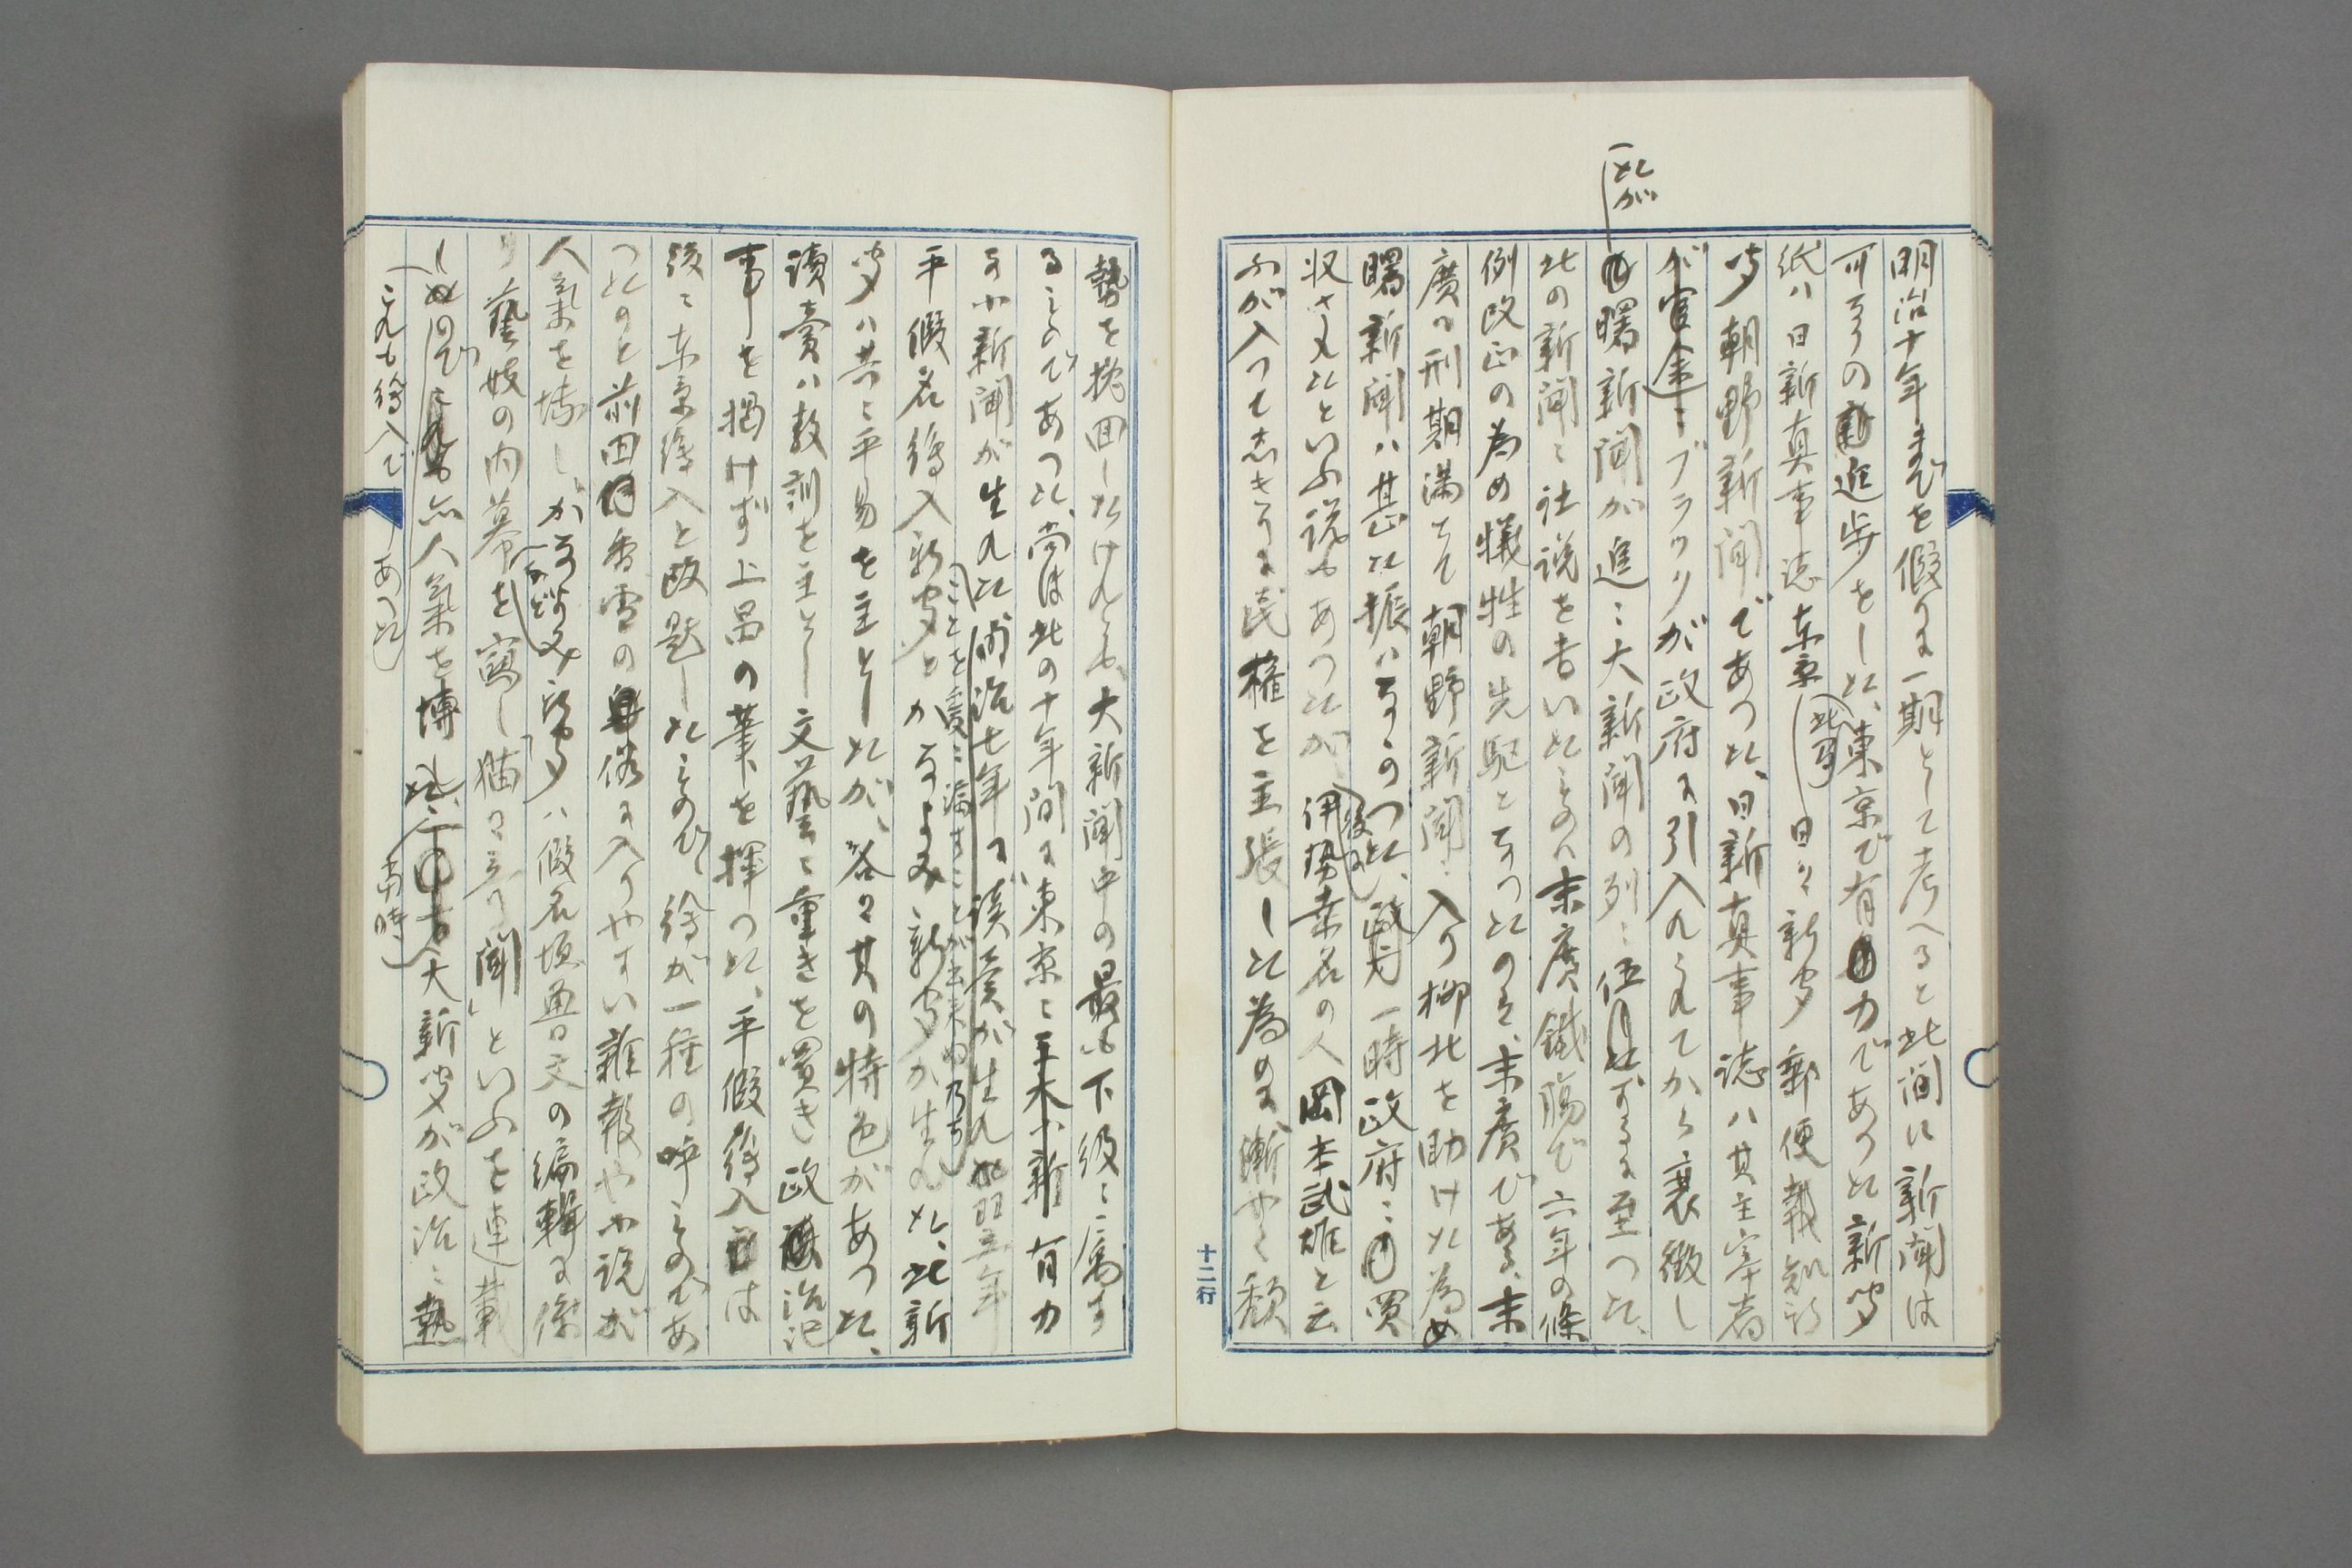 明治十年までを假りに一期として考へると此間に新聞は
可なりの進歩をした、東京で有力であつた新聞
紙ハ日新真事誌東京日々新聞郵便報知新
聞朝野新聞であつた、日新真事誌ハ其主宰者
ブラツクが政府に引入れられてから衰微し
たが
曙新聞が進ミ大新聞の列ニ伍するに至つた、
此の新聞ニ社説を書いたものハ末廣鐵膓で六年の條
例改正の為め犠牲の先駆となつたのは、末廣である、末
廣ハ刑期満ちて朝野新聞ニ入り柳北を助けた為め
曙新聞ハ甚だ振ハなかつた、一時政府ニ買
後に
収されたといふ説もあつたが伊勢桑名の人岡本武雄と云
ふが入つて志きりに民權を主張した為め、漸やく頽
十二行
勢を挽回したけれども、大新聞中の最も下級ニ属す
るものであつた、尚ほ此の十年間に東京ニ有力
な小新聞が生れた、明治七年に讀賣が生れ翌年
ことを
平假名繪入新聞とかなよみ新聞が生れた、此新
聞ハ共ニ平易を主としたが、各々其の特色があつた、
讀賣ハ教訓を主とし文藝ニ重きを置き政治記
事を掲けず上品の筆を揮つた、平假繪入は
後ニ東京繪入と改題したもので、繪が一種の呼ものであ
つたのと前田香雪の俗に入りやすい雑報や小説が
人氣を博し、かなよみ新聞ハ假名垣魯文の編輯に係
り藝妓の内幕を寫し「猫々 聞」といふを連載
したので 人氣を博した、大新聞が政治ニ熱
これも繪入で
あつた
當時